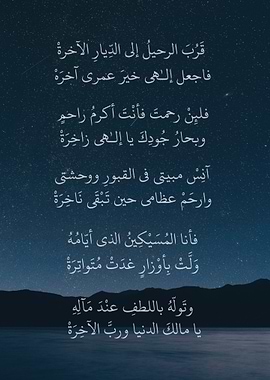 قَرُبَ الرحيلُ إلى الدِّيارِ الآخرةْ
فاجعل إلـٰهى خيرَ عمرى آخرَهْ
فلئِنْ رحمتَ فأنْتَ أكرمُ راحمٍ
وبحارُ جُودِكَ يا إلـٰهى زاخِرَةْ
آنِسْ مبيتى فى القبورِ ووحشتى
وارحَمْ عظامى حين تَبْقَى نَاخِرَةْ
فأنا المُسَيْكِينُ الذى أيّامُهُ
وَلَّتْ بِأوْزارٍ غدَتْ مُتَواتِرَةْ
وتَولَّهُ باللطفِ عنْدَ مَآلِهِ
يا مالكَ الدنيا وربَّ الآخِرَةْ